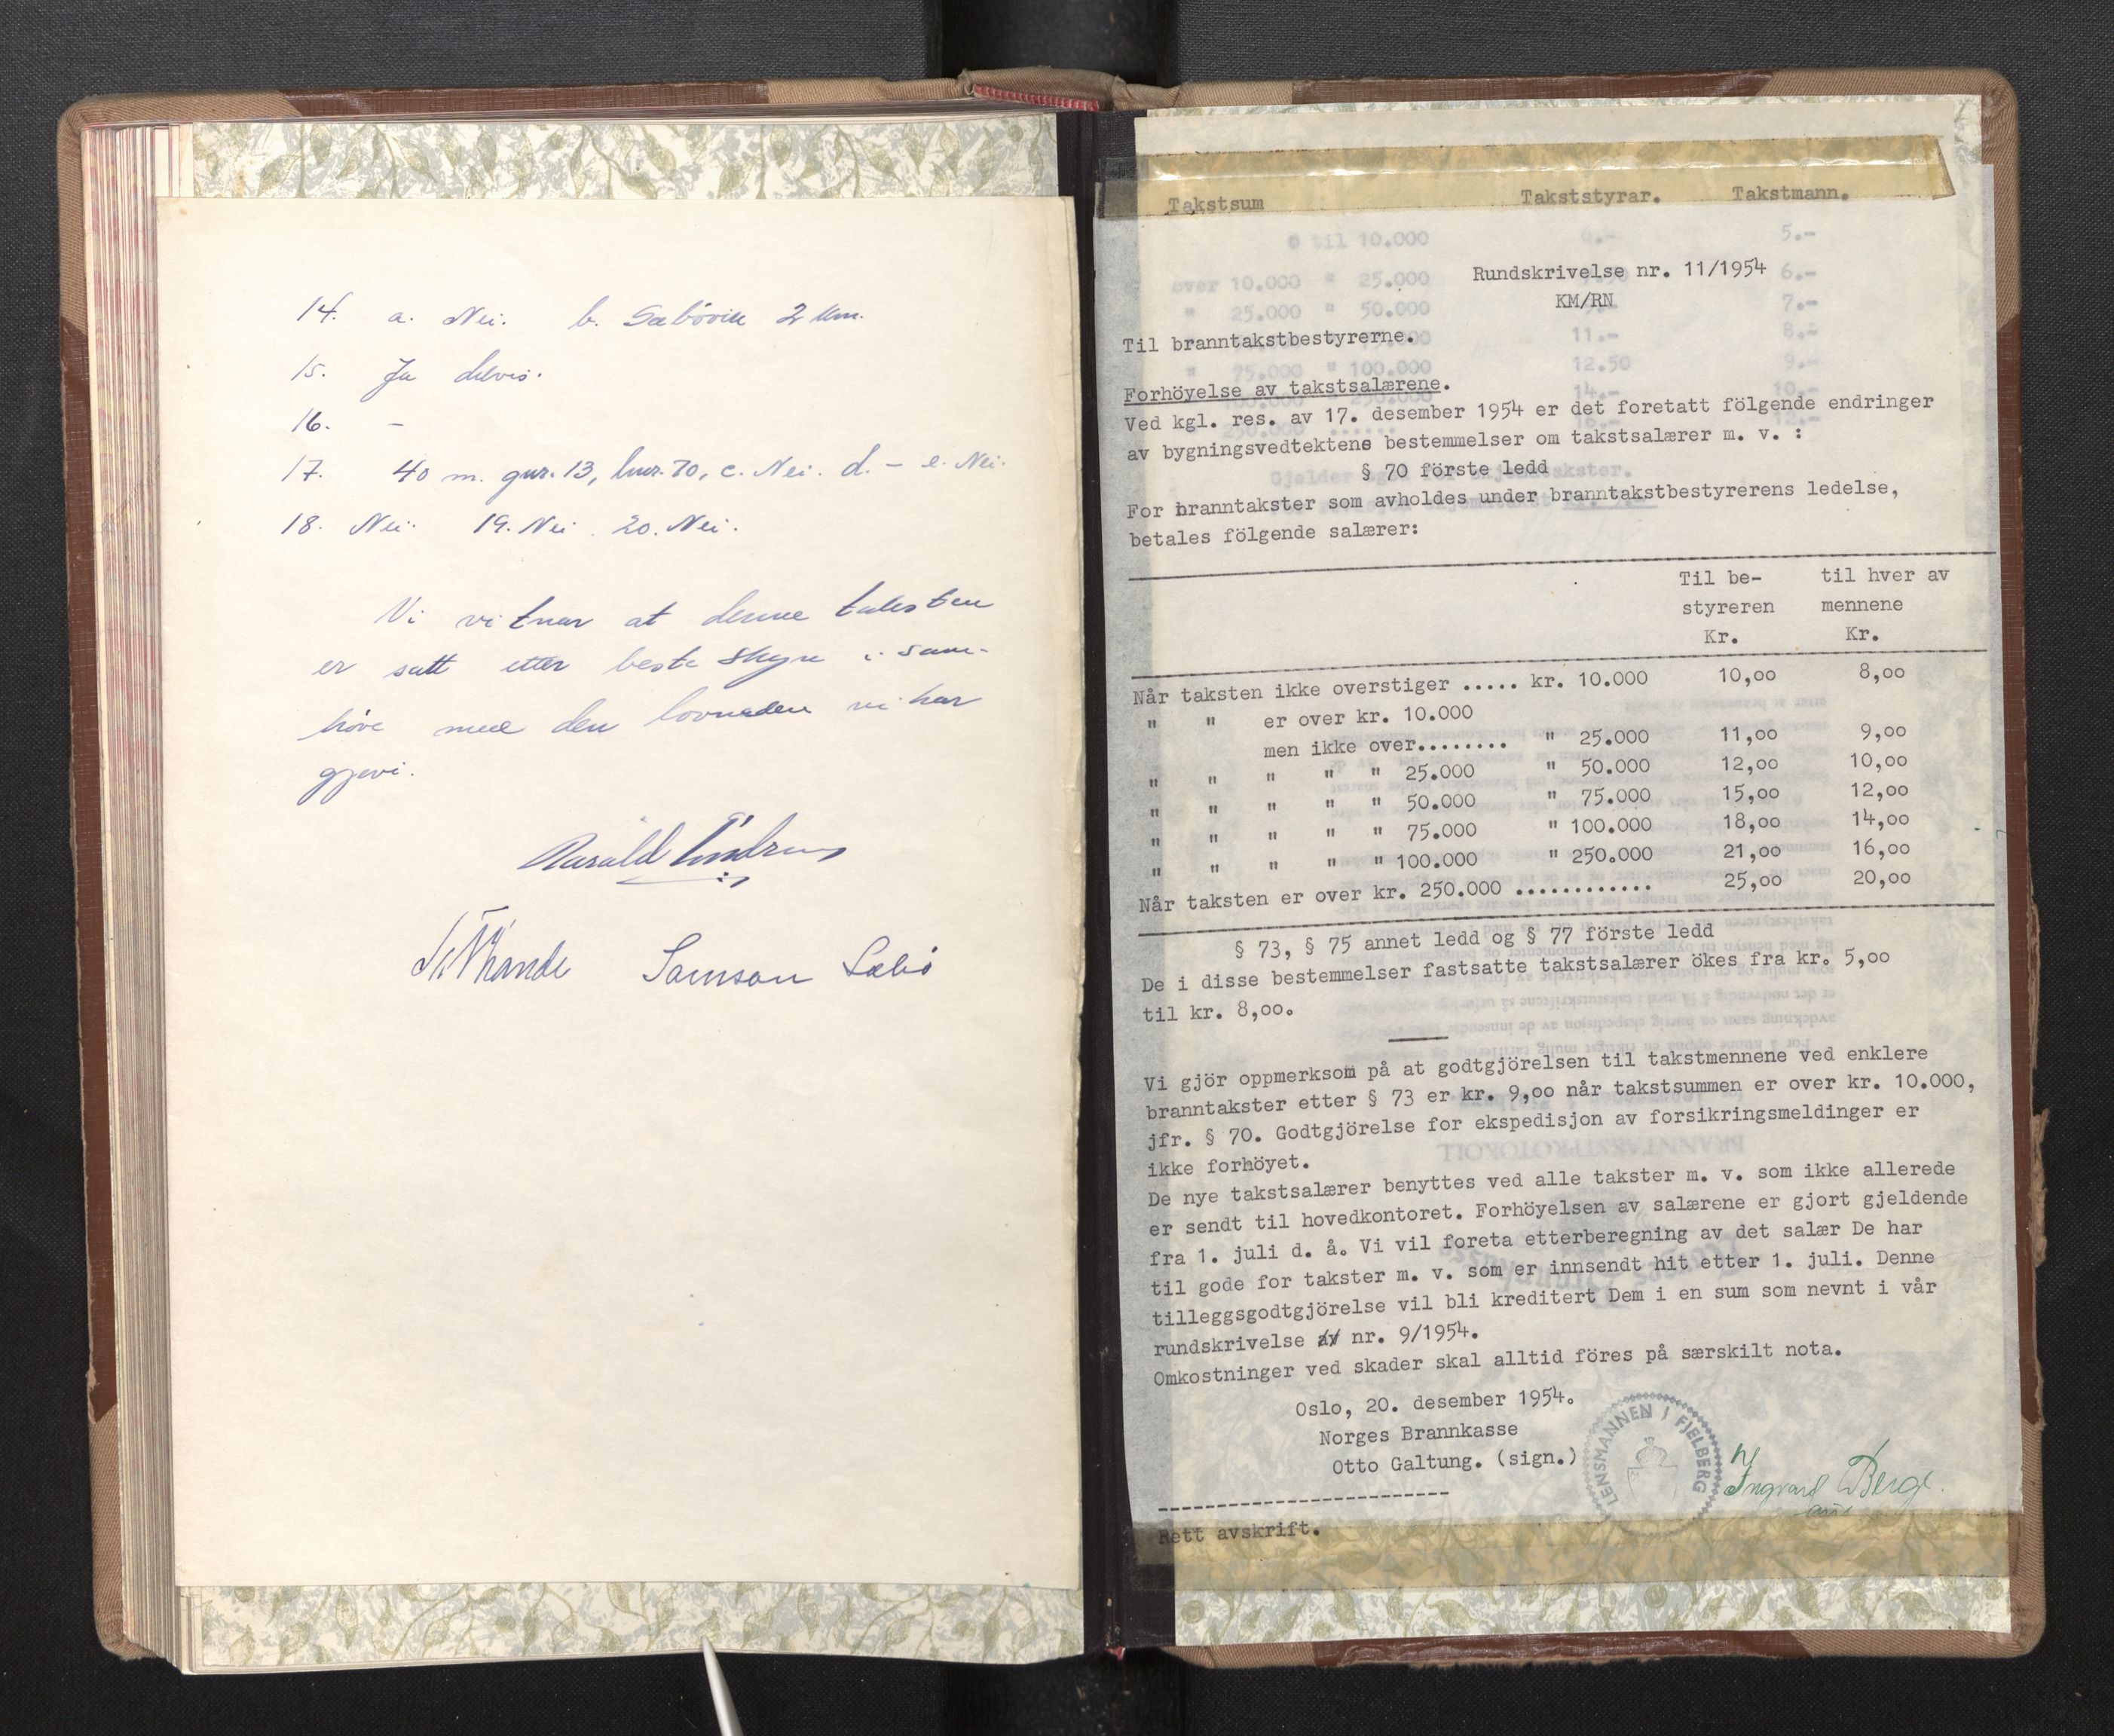 14. a. Nei. b. Sæbövik 2 km.
15. Ja delvis.
16. –
17. 40 m. gnr. 13, bnr. 70, c. Nei. d. – e. Nei.
18. Nei. 19. Nei. 20. Nei.
Vi vitnar at denne taksten
er satt etter beste skyn i sam-
höve med den lovnaden vi har
gjevi.
Samson Sæbö
Takstsum Takststyrar. Takstmann.
0 til 10.000 6.- 5.-
over 10.000 " 25.000 6.-
" 25.000 " 50.000 7.-
11.- 8.-
" 75.000 " 100.000 12.50 9.-
14.- 10.-
Rundskrivelse nr. 11/1954
KM/RN
Til branntakstbestyrerne.
Forhöyelse av takstsalærene.
Ved kgl. res. av 17. desember 1954 er det foretatt fölgende endringer
av bygningsvedtektens bestemmelser om takstsalærer m. v. :
§ 70 förste ledd
For branntakster som avholdes under branntakstbestyrerens ledelse,
betales fölgende salærer:
Til be- til hver av
styreren mennene
Kr. Kr.
Når taksten ikke overstiger ..... kr. 10.000 10,oo 8,oo
" " er over kr. 10.000
men ikke over........ " 25.000 11,oo 9,oo
" " " " " 25.000 " 50.000 12,oo 10,oo
" " " " " 50.000 " 75.000 15,oo 12,oo
" " " " " 75.000 " 100.000 18,oo 14,oo
" " " " " 100.000 " 250.000 21,oo 16,oo
Når taksten er over kr. 250.000 ............ 25,oo 20,oo
§ 73, § 75 annet ledd og § 77 förste ledd
De i disse bestemmelser fastsatte takstsalærer ökes fra kr. 5,oo
til kr. 8,oo.
Vi gjör oppmerksom på at godtgjörelsen til takstmennene ved enklere
branntakster etter § 73 er kr. 9,oo når takstsummen er over kr. 10.000,
jfr. § 70. Godtgjörelse for ekspedisjon av forsikringsmeldinger er
ikke forhöyet.
De nye takstsalærer benyttes ved alle takster m. v. som ikke allerede
er sendt til hovedkontoret. Forhöyelsen av salærene er gjort gjeldende
fra 1. juli d. å. Vi vil foreta etterberegning av det salær De har
til gode for takster m. v. som er innsendt hit etter 1. juli. Denne
tilleggsgodtgjörelse vil bli kreditert Dem i en sum som nevnt i vår
rundskrivelse nr. 9/1954.
Omkostninger ved skader skal alltid föres på særskilt nota.
Oslo, 20. desember 1954.
Norges Brannkasse
Otto Galtung. (sign.)
LENSMANNEN I FJELBERG
Ingvard Berge
Rett avskrift.